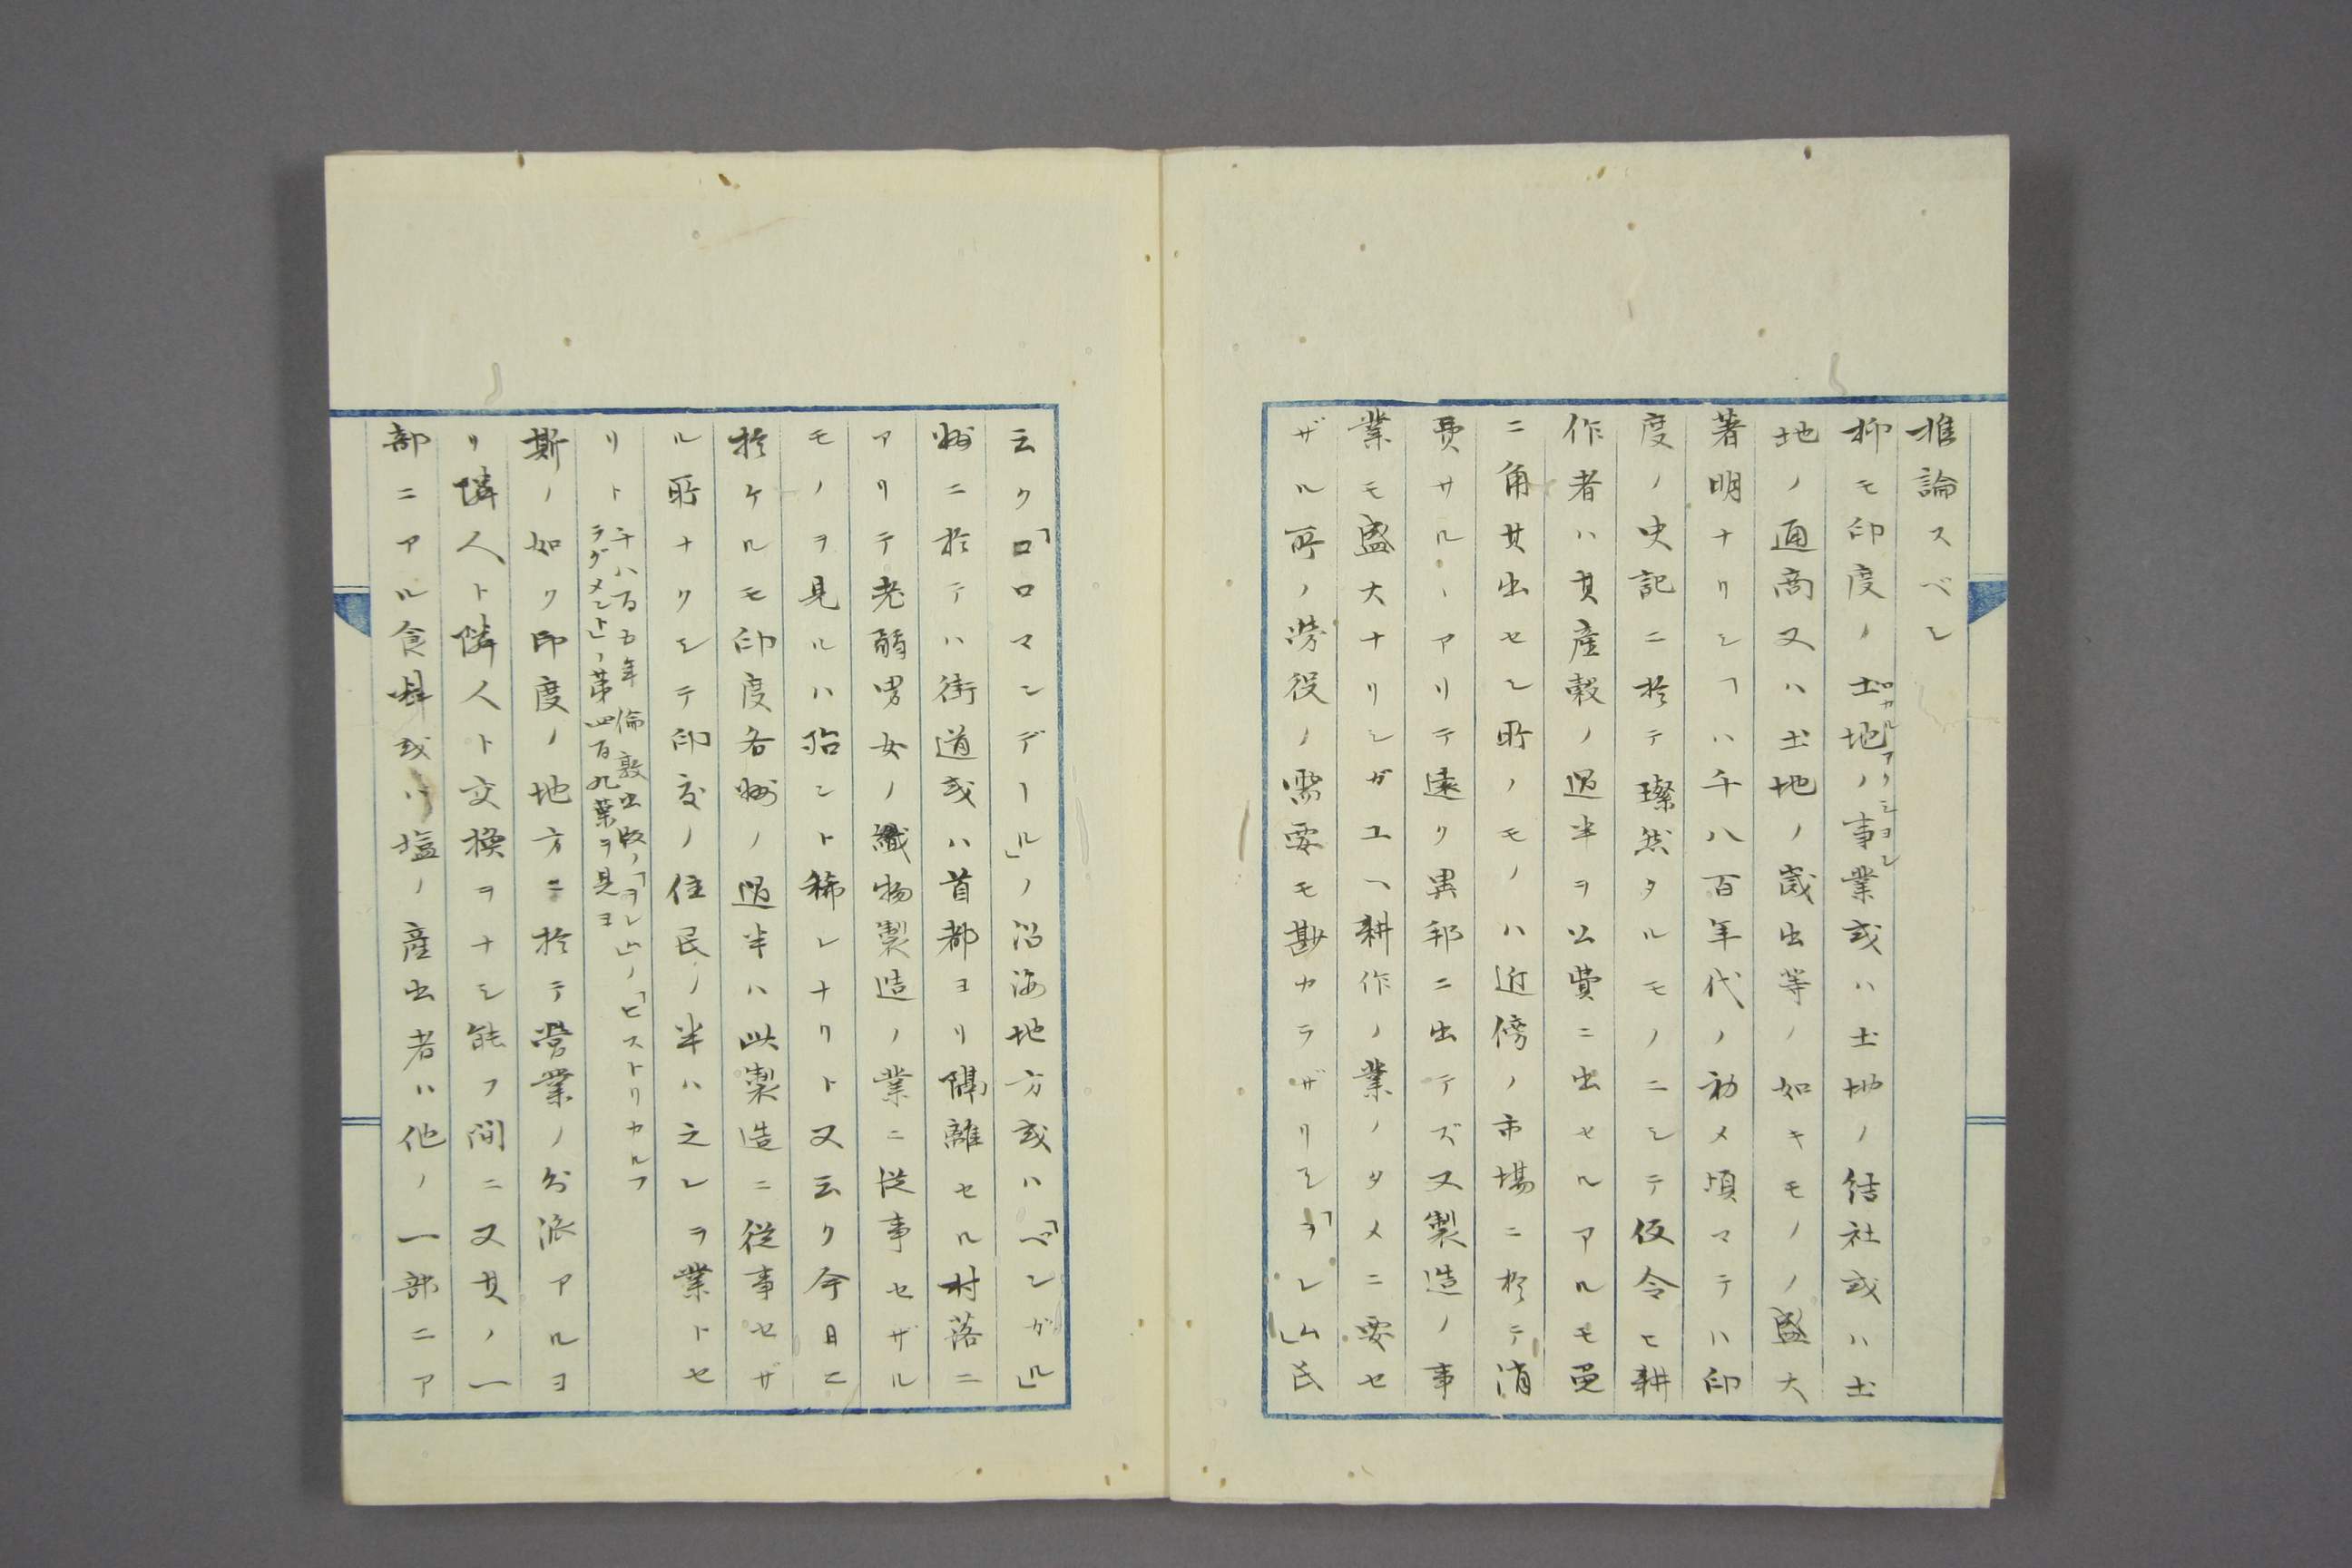 推論スベシ
抑モ印度ノ土地ノ事業或ハ土地ノ結社或ハ土
ロカルアクシヨン
地ノ通商又ハ土地ノ歳出等ノ如キモノノ盛大
著明ナリシヿハ千八百年代ノ初メ頃マテハ印
度ノ史記ニ於テ璨然タルモノニシテ仮令ヒ耕
作者ハ其産穀ノ過半ヲ公費ニ出セルアルモ兎
ニ角其出セシ所ノモノハ近傍ノ市場ニ於テ消
費サルヽアリテ遠ク異邦ニ出テズ又製造ノ事
業モ盛大ナリシガユヘ耕作ノ業ノタメニ要セ
ザル所ノ労役ノ需要モ尠カラザリシ「ヲレム」氏
云ク「コロマンデール」ノ沿海地方或ハ「ベンガル」
州ニ於テハ街道或ハ首都ヨリ隔離セル村落ニ
アリテ老弱男女ノ織物製造ノ業ニ従事セザル
モノヲ見ルハ殆ント稀レナリト又云ク今日ニ
於ケルモ印度各州ノ過半ハ此製造ニ従事セザ
ル所ナクシテ印度ノ住民ノ半ハ之レヲ業トセ
リト
千八百五年倫敦出版ノ「ヲレム」ノ「ヒストリカルフ
ラグメント」ノ第四百九葉ヲ見ヨ
斯ノ如ク印度ノ地方ニ於テ営業ノ分派アルヨ
リ隣人ト隣人ト交換ヲナシ能フ間ニ又其ノ一
部ニアル食料或ハ塩ノ産出者ハ他ノ一部ニア